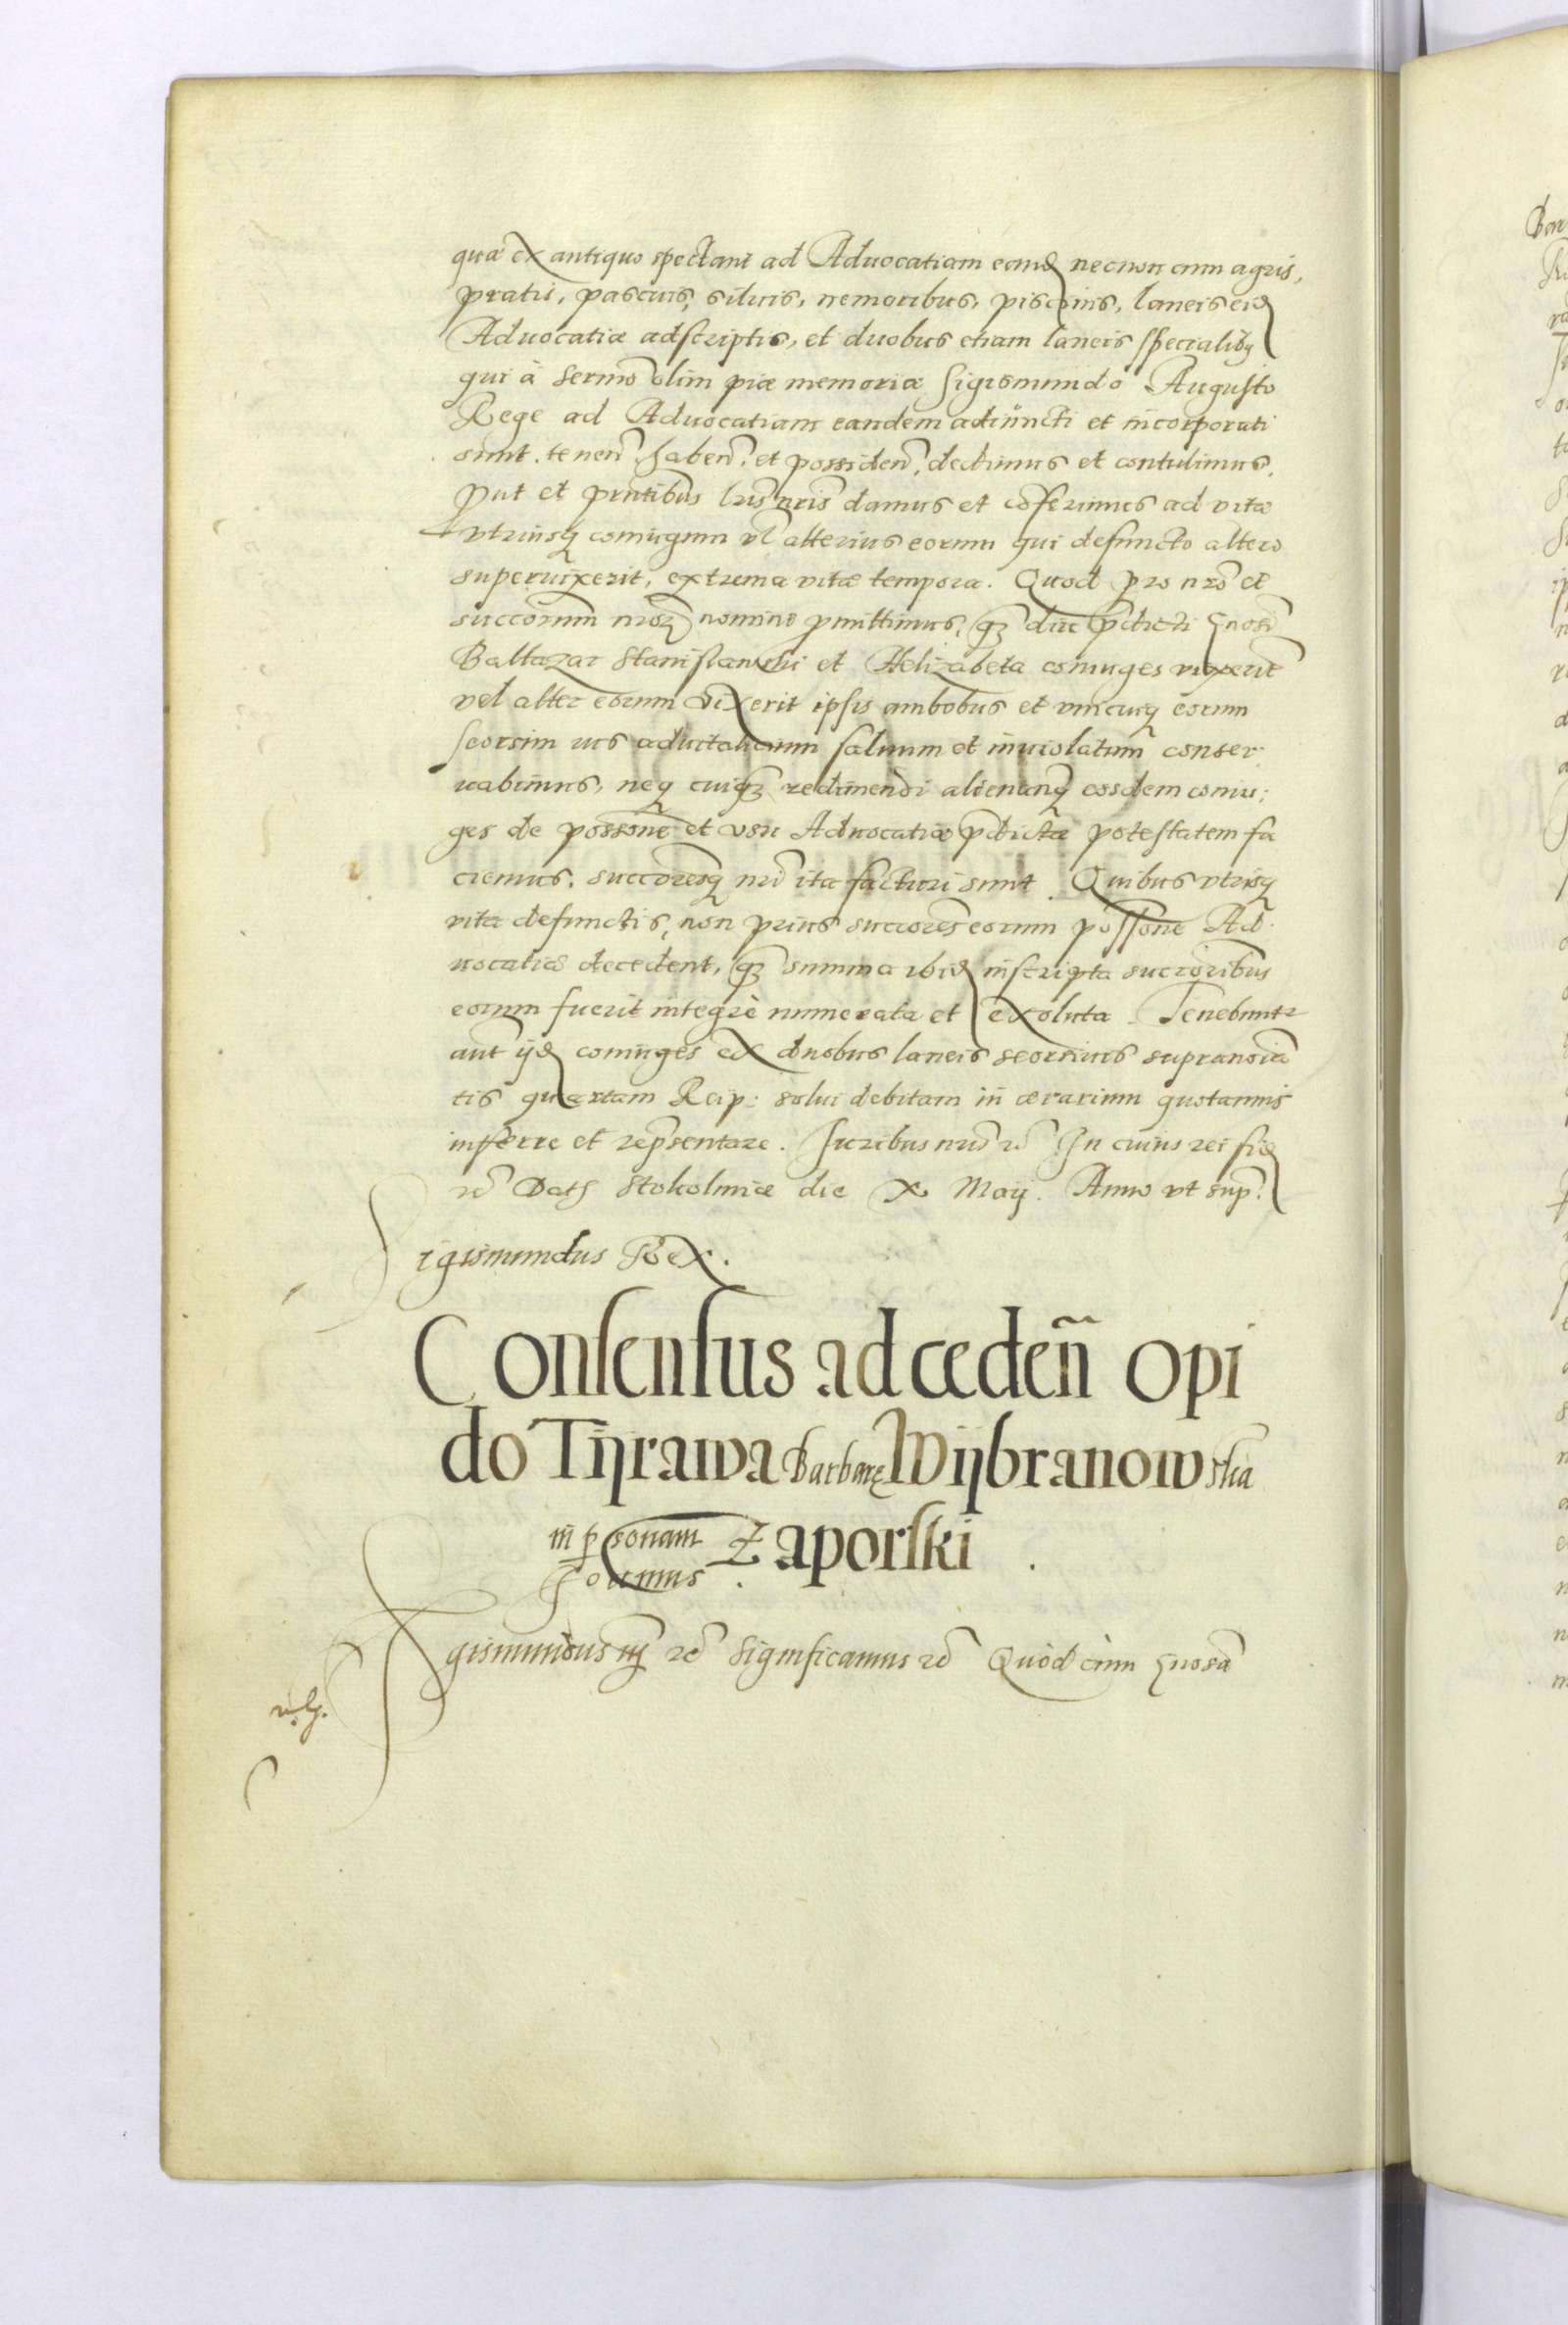 quæ ex antiquo spectant ad Aduocatiam eand necnon cum agris,
pratis, pascuis, siluis, nemoribus, piscinis, laneis eid
Aduocatiæ adscriptis, et duobus etiam laneis specialibq
qui à Sermo olim piæ memoriæ Sigismundo Augusto
Rege ad Aduocatiam eandem adiuncti et incorporati
sunt. tenen. haben. et possiden. dedimus et contulimus.
Put et pntibus lris nris damus et coferimus ad vitæ
vtriusq coniugum vl alterius eorum qui defuncto altero
superuixerit, extrema vitæ tempora. Quod pro nro et
succorum nror nomine pmittimus, qz diu pdicti Gnosi
Baltazar Stanislawski et Helizabeta coniuges vixerit
vel alter eorum vixerit ipsis ambobus et vnicuiq eorum
seorsim ius aduitalicium saluum et inuiolatum conser:
uabimus, neq cuiqz redimendi alienanq eosdem coniu:
ges de possone et vsu Aduocatiæ pdictæ potestatem fa
ciemus. succoresq nri ita facturi sunt. Quibus vtrisq
vita defunctis, non prius succores eorum possone Ad
uocatiæ decedent, qz summa ibid inscripta succoribus
eorum fuerit integrè numerata et exoluta. Tenebuntr
aut ijd coniuges ex duobus laneis seorsiuis supranoia
tis quartam Reip: solui debitam in ærarium quotannis
inferre et repsentare. Iuribus nris rc In cuius rei fid
rc Dat Stokolmiæ die X Maij. Anno vt sup.
Sigismundus Rex.
Consensus ad ceden opi
do Tijrawa Barbaræ Wijbranowska
in personam Zaporski
Sigismundus iij rc Significamus rc Quod cum Gnosa